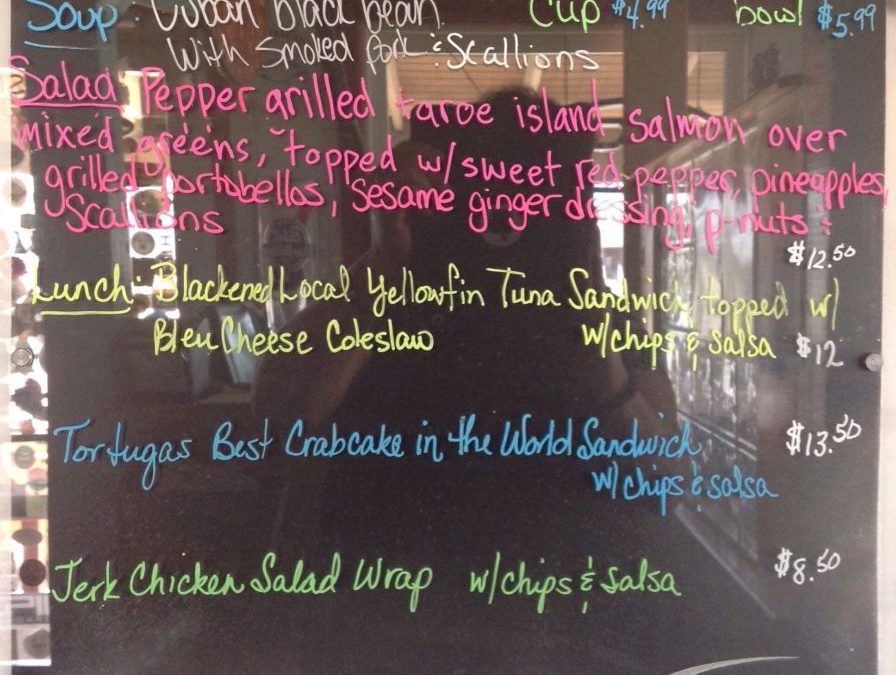 Soup: Cuban black bean Cup $4.99 bowl $5.99
With Smoked pork & Scallions
Salad Pepper grilled faroe island salmon over
mixed greens, topped w/ sweet red pepper, pineapples,
grilled portobellos, Sesame ginger dressing, p-nuts &
Scallions
$12.50
Lunch: Blackened Local Yellowfin Tuna Sandwich topped w/
Bleu Cheese Coleslaw w/chips & salsa $12
Tortugas Best Crabcake in the World Sandwich $13.50
w/ chips & salsa
Jerk Chicken Salad Wrap w/chips & salsa $8.50